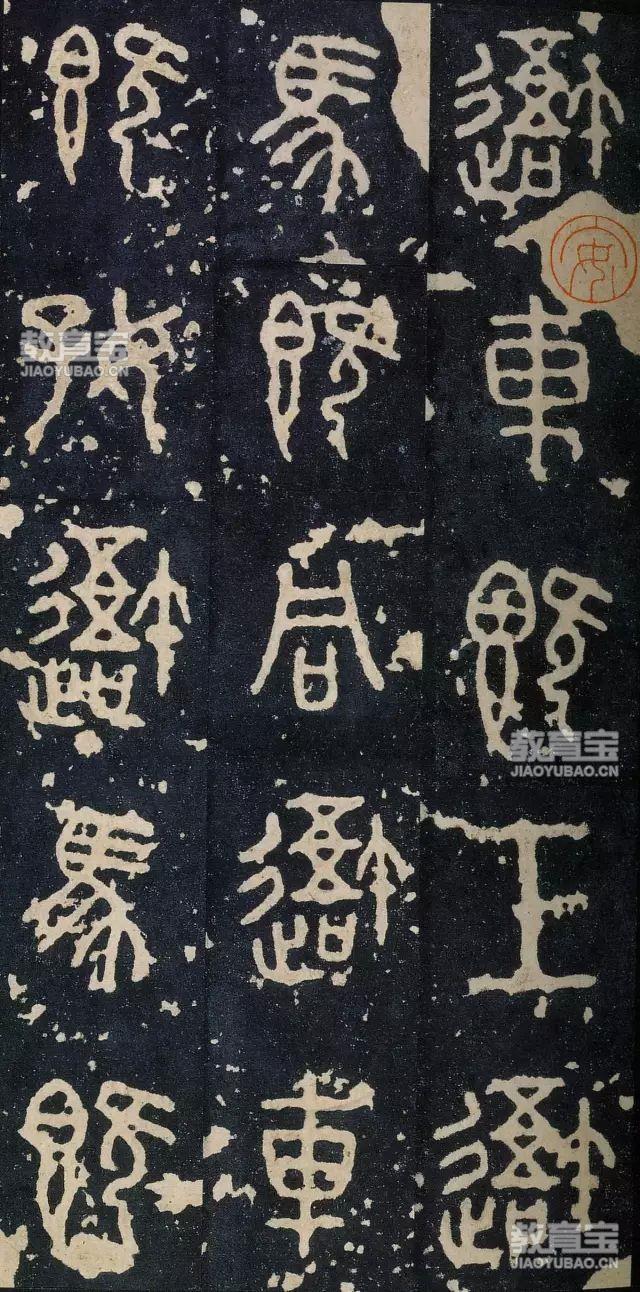 吾車既工吾
馬既同吾車
既好吾馬既
教育宝
JIAOYUBAO.CN
教育宝
JIAOYUBAO.CN
教育宝
JIAOYUBAO.CN